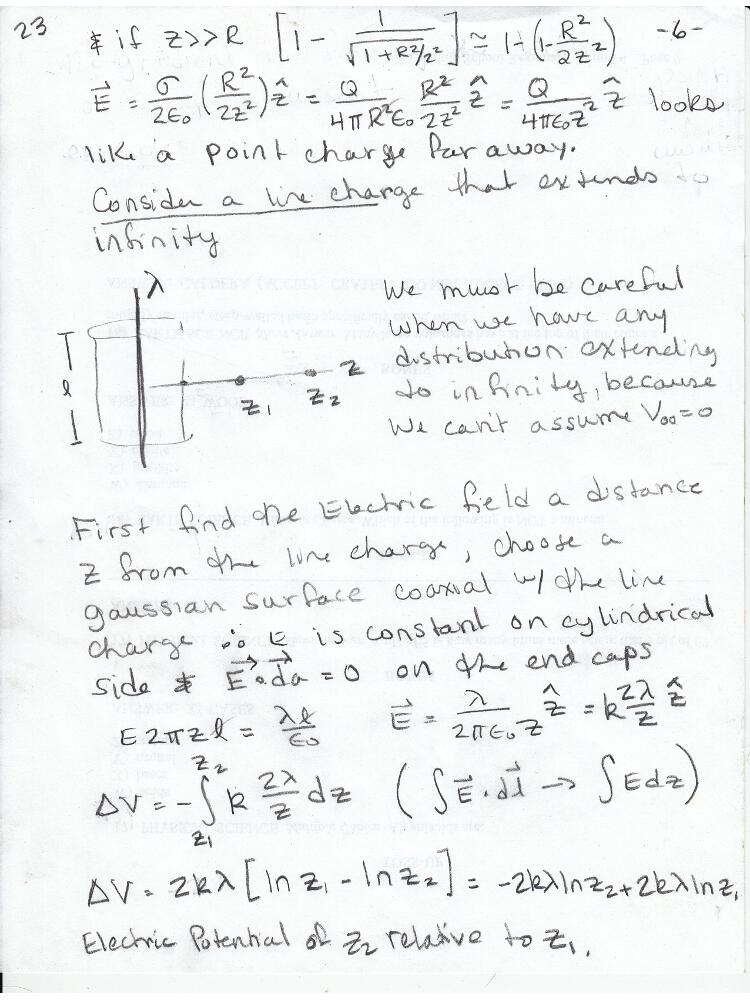 23
& if z>>R [1 - 1/√(1+R²/z²)] ≃ 1-(1-R²/2z²) -6-
E⃗ = σ/2ε₀ (R²/2z²) ẑ = Q/4πR²ε₀ R²/2z² ẑ = Q/4πε₀z² ẑ looks
like a point charge far away.
Consider a line charge that extends to
infinity
λ
l
z₁ z₂ z
We must be careful
when we have any
distribution extending
to infinity, because
we can't assume V∞=0
First find the Electric field a distance
z from the line charge, choose a
gaussian surface coaxial w/ the line
charge ∴ E is constant on cylindrical
side & E⃗•da⃗ = 0 on the end caps
E2πzl = λl/ε₀ E⃗ = λ/2πε₀z ẑ = k 2λ/z ẑ
ΔV = -∫_{z₁}^{z₂} k 2λ/z dz (∫E⃗•dl⃗ → ∫Edz)
ΔV = 2kλ[ln z₁ - ln z₂] = -2kλlnz₂+2kλlnz₁
Electric Potential of z₂ relative to z₁.